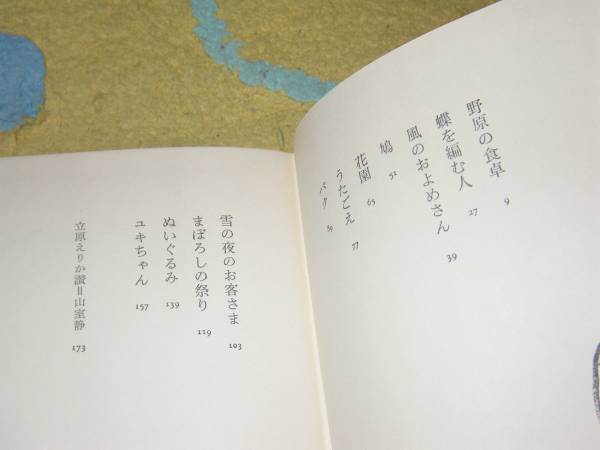 野原の食卓 9
蝶を編む人 27
風のおよめさん 39
鳩 51
花園 65
うたごえ 77
バク 89
雪の夜のお客さま 103
まぼろしの祭り 119
ぬいぐるみ 139
ユキちゃん 157
立原えりか讃=山室静 173